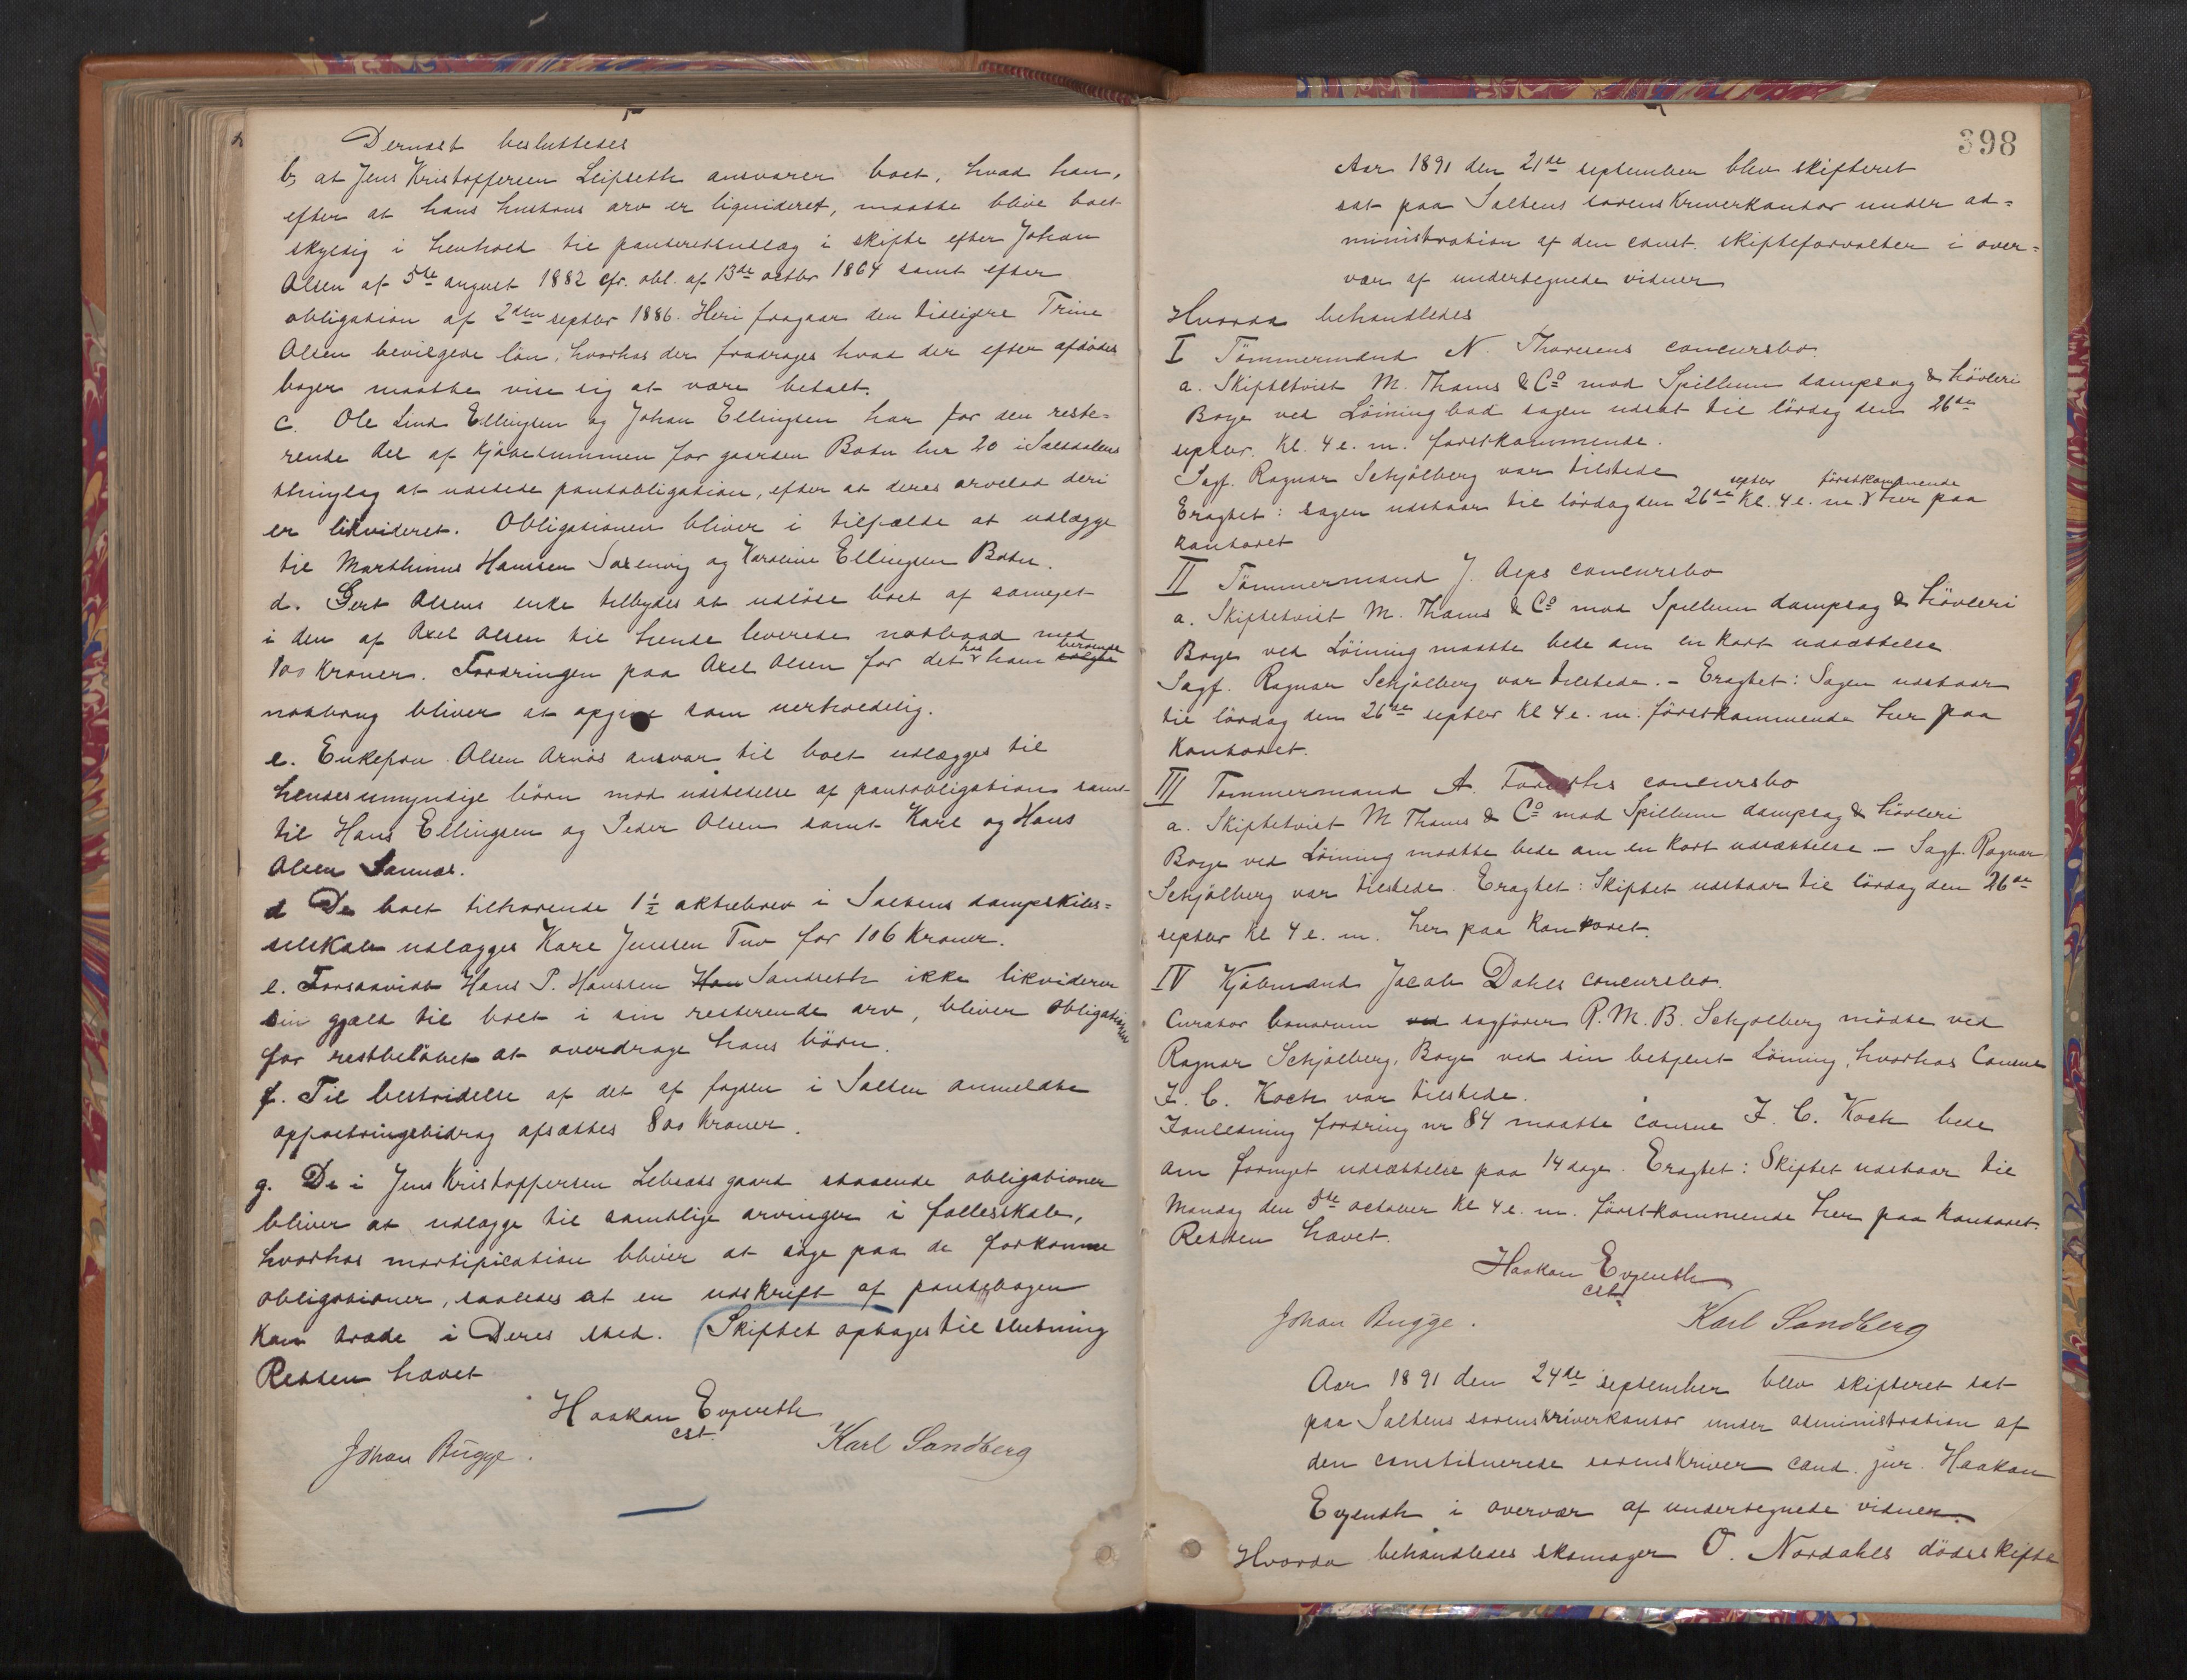 Dernæst besluttedes
b, at Jens Kristoffersen Leifseth ansvarer boet, hvad han,
efter at hans hustrus arv er liquideret, maatte blive boet
skyldig i henhold til panteretsudlæg i skifte efter Johan
Olsen af 5te august 1882 cfr. obl. af 13de octbr 1864 samt efter
obligation af 2den septbr 1886. Heri fragaar den tidligere Trine
Olsen bevilgede løn, hvorhos der fradrages hvad der efter afdødes
bøger maatte vise sig at være betalt.
c. Ole Lind Ellingsen og Johan Ellingsen har for den reste=
rende del af kjøbesummen for gaarden Botn lnr 20 i Saltdalens
thinglag at udstede pantobligation, efter at deres arvelod deri
er likvideret. Obligationen bliver i tilfælde at udlægge
til Marthinus Hansen Saxenvig og Karoline Ellingsen Botn.
d. Gert Olsens enke tilbydes at udløse boet af sameiet
i den af Axel Olsen til hende leverede notbaad med
100 kroner. Fordringen paa Axel Olsen for det hos ham beroende solgte
notbrug bliver at opgive som uerholdelig.
e. Enkefru Olsen Arnøs ansvar til boet udlægges til
hendes umyndige børn mod udstedelse af pantobligation samt
til Hans Ellingsen og Peder Olsen samt Karl og Hans
Olsen Sannæs.
d De boet tilhørende 1½ aktiebrev i Saltens dampskibs=
selskab udlægges Kare Jensen Tuv for 106 kroner.
e. Forsaavidt Hans P. Hanssen Han Sandseth ikke likviderer
sin gjæld til boet i sin resterende arv, bliver obligationen
for restbeløbet at overdrage hans børn.
f. Til bestridelse af det af fogden i Salten anmeldte
opfostringsbidrag afsættes 800 kroner.
g. De i Jens Kristoffersen Lebsets gaard staaende obligationer
bliver at udlægge til samtlige arvinger i fællesskab,
hvorhos mortifikation bliver at søge paa de forkomne
obligationer, saaledes at en udskrift af pantebogen
kan træde i Deres sted. Skiftet optages til slutning
Retten hævet
Haakon Evjenth
cst.
Johan Bugge. Karl Sandberg
398
Aar 1891 den 21de september blev skifteret
sat paa Saltens sorenskriverkontor under ad=
ministration af den const. skifteforvalter i over=
vær af undertegnede vidner
Hvorda behandledes
I Tømmermand N. Thoresens concursbo.
a. Skiftetvist M. Thams & Co mod Spillum dampsag & høvleri
Boye ved Löining bad sagen udsat til lördag den 26de
septbr. kl. 4 e. m. førstkommende.
Sagf. Ragnar Schjølberg var tilstede
Eragtet: sagen udstaar til lördag den 26de septbr kl. 4 e. m. førstkommende her paa
kontoret
II Tømmermand J. Alps concursbo
a. Skiftetvist M. Thams & Co mod Spillum dampsag & høvleri
Boye ved Löining maatte bede om en kort udsættelse
Sagf. Ragnar Schjølberg var tilstede. - Eragtet: Sagen udstaar
til lördag den 26de septbr kl 4 e. m. førstkommende her paa
kontoret.
III Tømmermand A. concursbo
a. Skiftetvist M Thams & Co mod Spillum dampsag & høvleri
Boye ved Löining maatte bede om en kort udsættelse - Sagf. Ragnar
Schjølberg var tilstede. Eragtet: Skiftet udstaar til lördag den 26de
septbr kl 4 e. m. her paa kontoret.
IV Kjøbmand Jacob Dahls concursbo.
Curator bonorum ved sagfører P. M. B. Schjølberg mødte ved
Ragnar Schjølberg, Boye ved sin betjent Löining, hvorhos Consul
J. C. Koch var tilstede.
Ianledning fordring nr 84 maatte consul J. C. Koch bede
om fornyet udsættelse paa 14 dage. Eragtet: Skiftet udstaar til
Mandag den 5te october kl 4 e. m. førstkommende her paa kontoret.
Retten hævet.
Haakon Evjenth
cst.
Johan Bugge. Karl Sandberg
Aar 1891 den 24de september blev skifteret sat
paa Saltens sorenskriverkontor under administration af
den constituerede sorenskriver cand. jur. Haakon
Evjenth i overvær af undertegnede vidner.
Hvorda behandledes skomager O. Nordahls dødsskifte